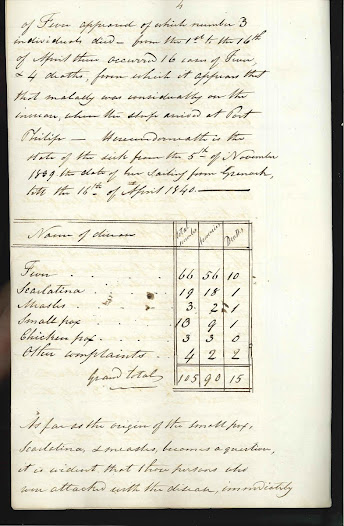 4
of Fever appeared of which number 3
individuals died – from the 1st to the 16th
of April there occurred 16 cases of Fever,
& 4 deaths, from which it appears that
that malady was considerably on the
increase, when the ship arrived at Port
Philip – Hereunderneath is the
state of the sick from the 5th of November
1839 the date of her Sailing from Greenock,
till the 16th of April 1840. –
Name of disease Total number Recoveries Deaths
Fever . . . . 66 56 10
Scarlatina . . . . 19 18 1
Measles . . . . 3 2 1
Small pox . . . . 10 9 1
Chicken pox . . . 3 3 0
Other complaints . . 4 2 2
Grand total 105 90 15
As far as the origin of the small pox,
Scarlatina, & measles, becomes a question,
it is evident that those persons who
were attacked with the disease, immediately